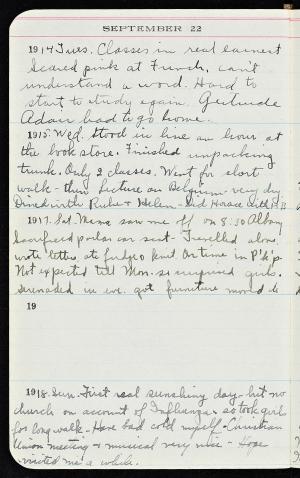 SEPTEMBER 22
1914 Tues. Classes in real earnest
Scared pink at French, can't
understand a word. Hard to
start to study again. Gertrude
Adair had to go home.
1915. Wed. Stood in line an hour at
the book store. Finished unpacking
trunk. Only 2 classes. Went for short
walk - then lecture on Belgium - very dry
Dined with Rube + Helen - Did Horace with
1917. Sat. Mama saw me off on 8:30 Albany
Sacrificed parlor car seat - Travelled alone,
wrote letters, ate fudge & knit. On time in P'k'p.
Not expected till Mon. so surprised girls.
Serenaded in eve. got furniture moved
19
1918. Sun. First real sunshiny day - but no
church on account of Influenza - so took girls
for long walk - Have bad cold myself - Christian
Union meeting & musical very nice - Hope
visited me a while.